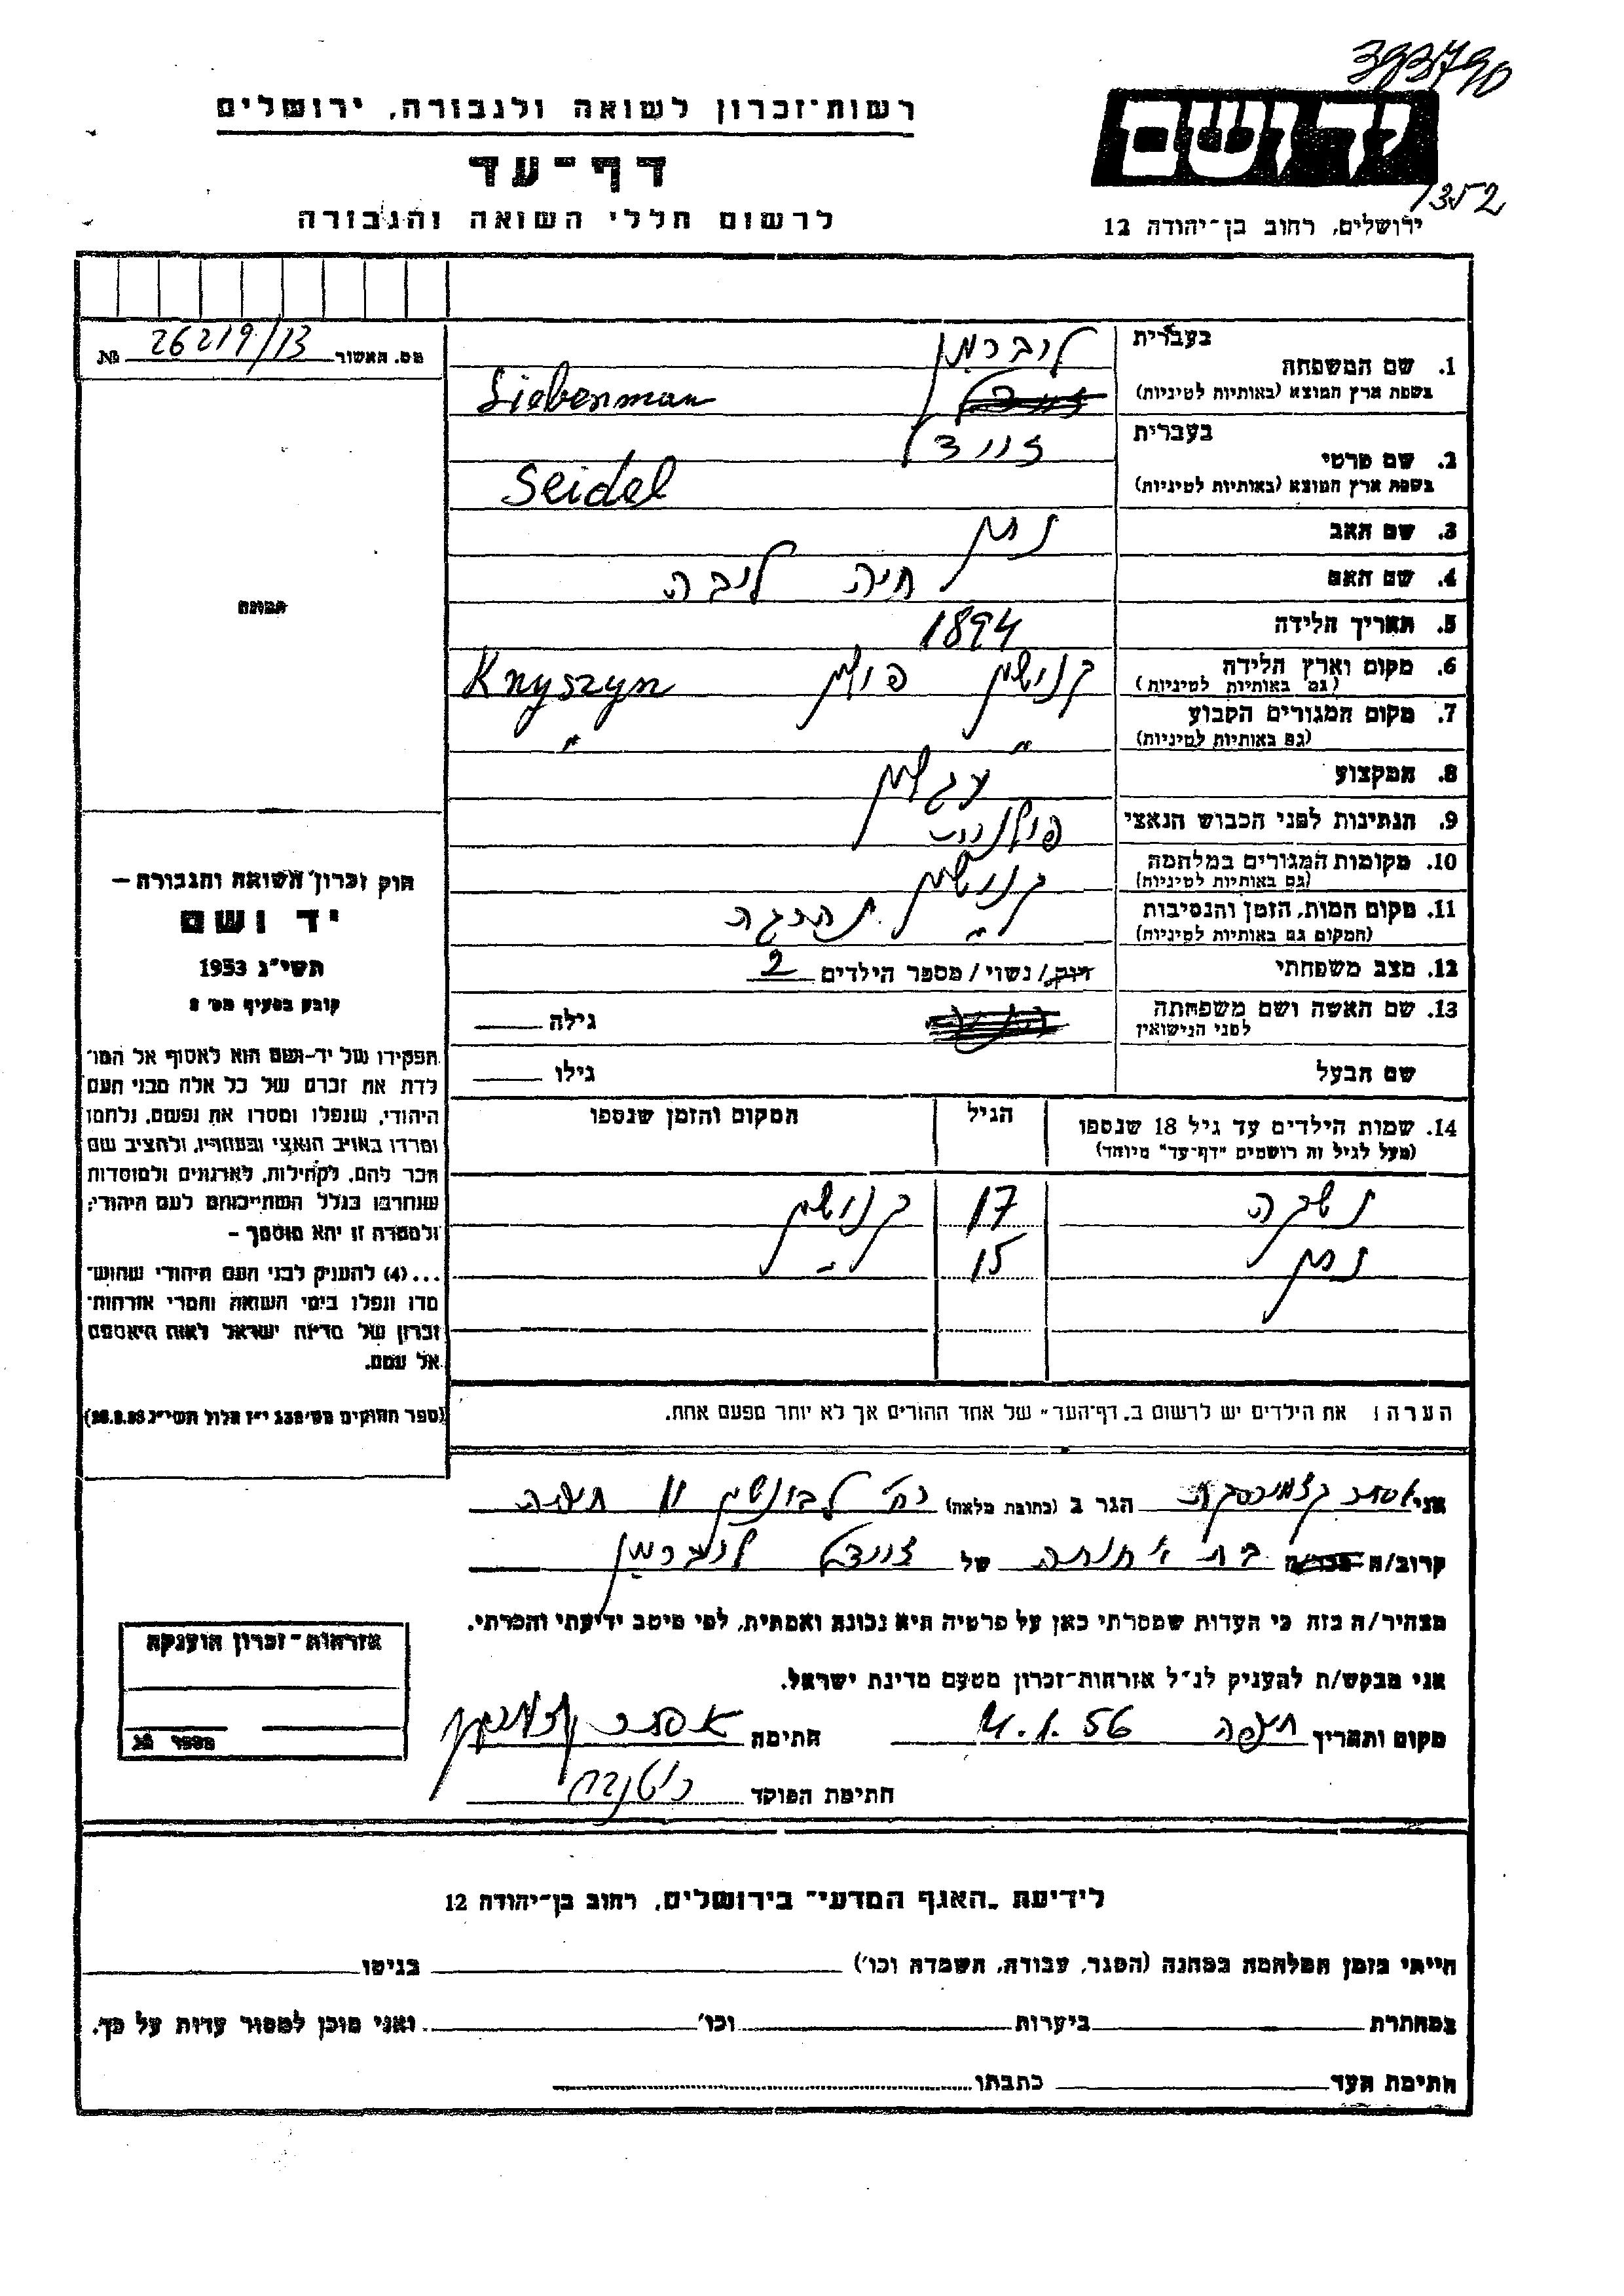 393790
רשות-זכרון לשואה ולגבורה, ירושלים
יד ושם
דף-עד
1352
לרשום חללי השואה והגבורה
ירושלים, רחוב בן-יהודה 12
מס. האשור 26219/13 №
בעברית ליברמן
1. שם המשפחה
בשפת ארץ המוצא (באותיות לטיניות) Liebenman
בעברית זיידל
2. שם פרטי
בשפת ארץ המוצא (באותיות לטיניות) Seidel
3. שם האב נתן
4. שם האם חיה ליבה
5. תאריך הלידה 1894
6. מקום וארץ הלידה קנישין פולין Knyszyn
(גם באותיות לטיניות)
7. מקום המגורים הקבוע " "
(גם באותיות לטיניות)
8. המקצוע עגלון
9. הנתינות לפני הכבוש הנאצי פולנית
10. מקומות המגורים במלחמה קנישין
(גם באותיות לטיניות)
11. מקום המות, הזמן והנסיבות " נהרגה
(המקום גם באותיות לטיניות)
12. מצב משפחתי רווק/נשוי/מספר הילדים 2
13. שם האשה ושם משפחתה
לפני הנישואין
גילה
שם הבעל גילו
14. שמות הילדים עד גיל 18 שנספו הגיל המקום והזמן שנספו
(מעל לגיל זה רושמים "דף-עד" מיוחד)
17 קנישין
נתן 15 "
הערה: את הילדים יש לרשום ב„דף-העד" של אחד ההורים אך לא יותר מפעם אחת.
תמונה
חוק זכרון השואה והגבורה —
יד ושם
תשי"ג 1953
קובע בסעיף מס' 2
תפקידו של יד-ושם הוא לאסוף אל המו-
לדת את זכרם של כל אלה מבני העם
היהודי, שנפלו ומסרו את נפשם, נלחמו
ומרדו באויב הנאצי ובעוזריו, ולהציב שם
וזכר להם, לקהילות, לארגונים ולמוסדות
שנחרבו בגלל השתייכותם לעם היהודי;
ולמטרה זו יהא מוסמך —
...(4) להעניק לבני העם היהודי שהוש-
מדו ונפלו בימי השואה והמרי אזרחות-
זכרון של מדינת ישראל לאות היאספם
אל עמם.
(ספר החוקים מס' 132 י"ז אלול תשי"ג 28.8.53)
אני אסתר הגר ב (כתובת מלאה) רח' 11 חיפה
קרוב/ה בת אחותה של זיידל ליברמן
מצהיר/ה בזה כי העדות שמסרתי כאן על פרטיה היא נכונה ואמתית, לפי מיטב ידיעתי והכרתי.
אני מבקש/ת להעניק לנ"ל אזרחות-זכרון מטעם מדינת ישראל.
מקום ותאריך חיפה 4.1.56 חתימה אסתר
חתימת הפוקד
אזרחות-זכרון הוענקה
מספר №
לידיעת „האגף המדעי" בירושלים, רחוב בן-יהודה 12
הייתי בזמן המלחמה במחנה (הסגר, עבודה, השמדה וכו') בגיטו
במחתרת ביערות וכו' ואני מוכן למסור עדות על כך.
חתימת העד כתבתו